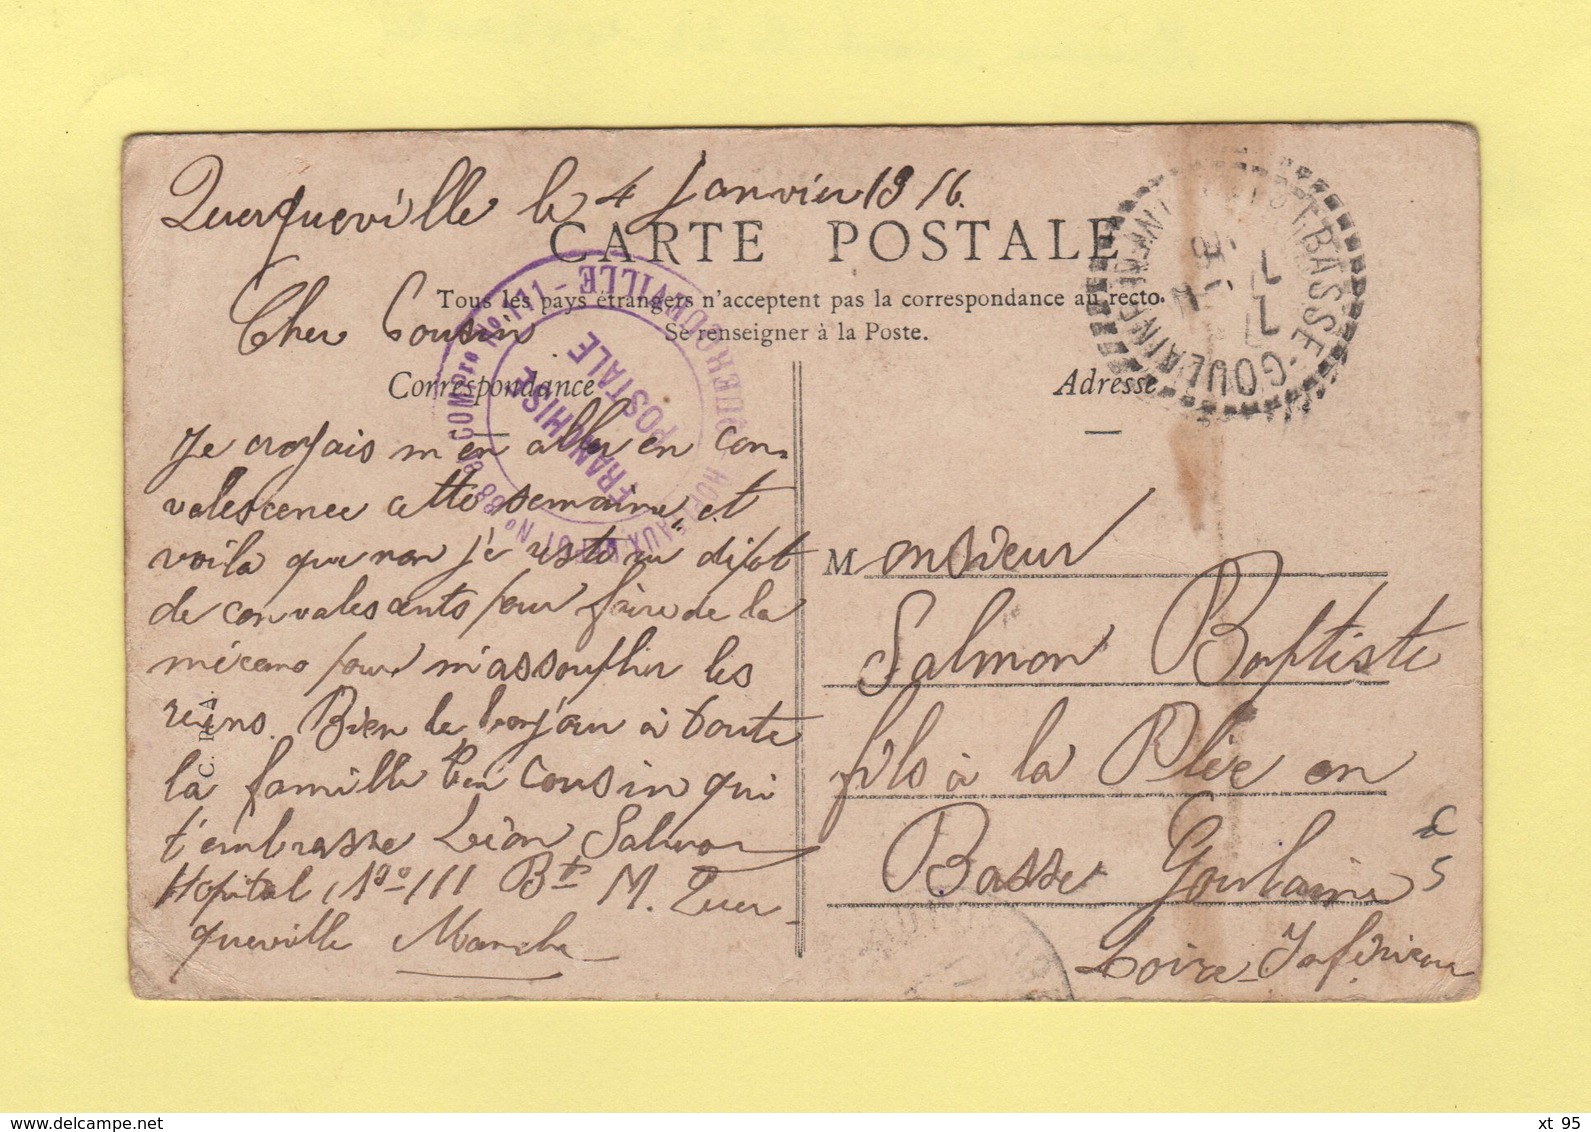 Querqueville le 4 Janvier 1916.
CARTE POSTALE
Tous les pays étrangers n'acceptent pas la correspondance au recto.
Se renseigner à la Poste.
Cher Cousin
Correspondance
Je croyais m'en aller en con-
valescence cette semaine, et
voilà que non j'e reste au dépot
de convalescents pour faire de la
mécano pour m'assouplir les
reins. Bien le bonjour à toute
la famille Ton cousin qui
t'embrasse Léon Salmon
Hopital, Nº 111 Bt M. Quer-
queville Manche
Adresse
Monsieur
Salmon Baptiste
fils à la Plée en
Basse Goulaine
Loire-Inférieure
FRANCHISE
POSTALE
QUERQUEVILLE
BASSE-GOULAINE
xt 95